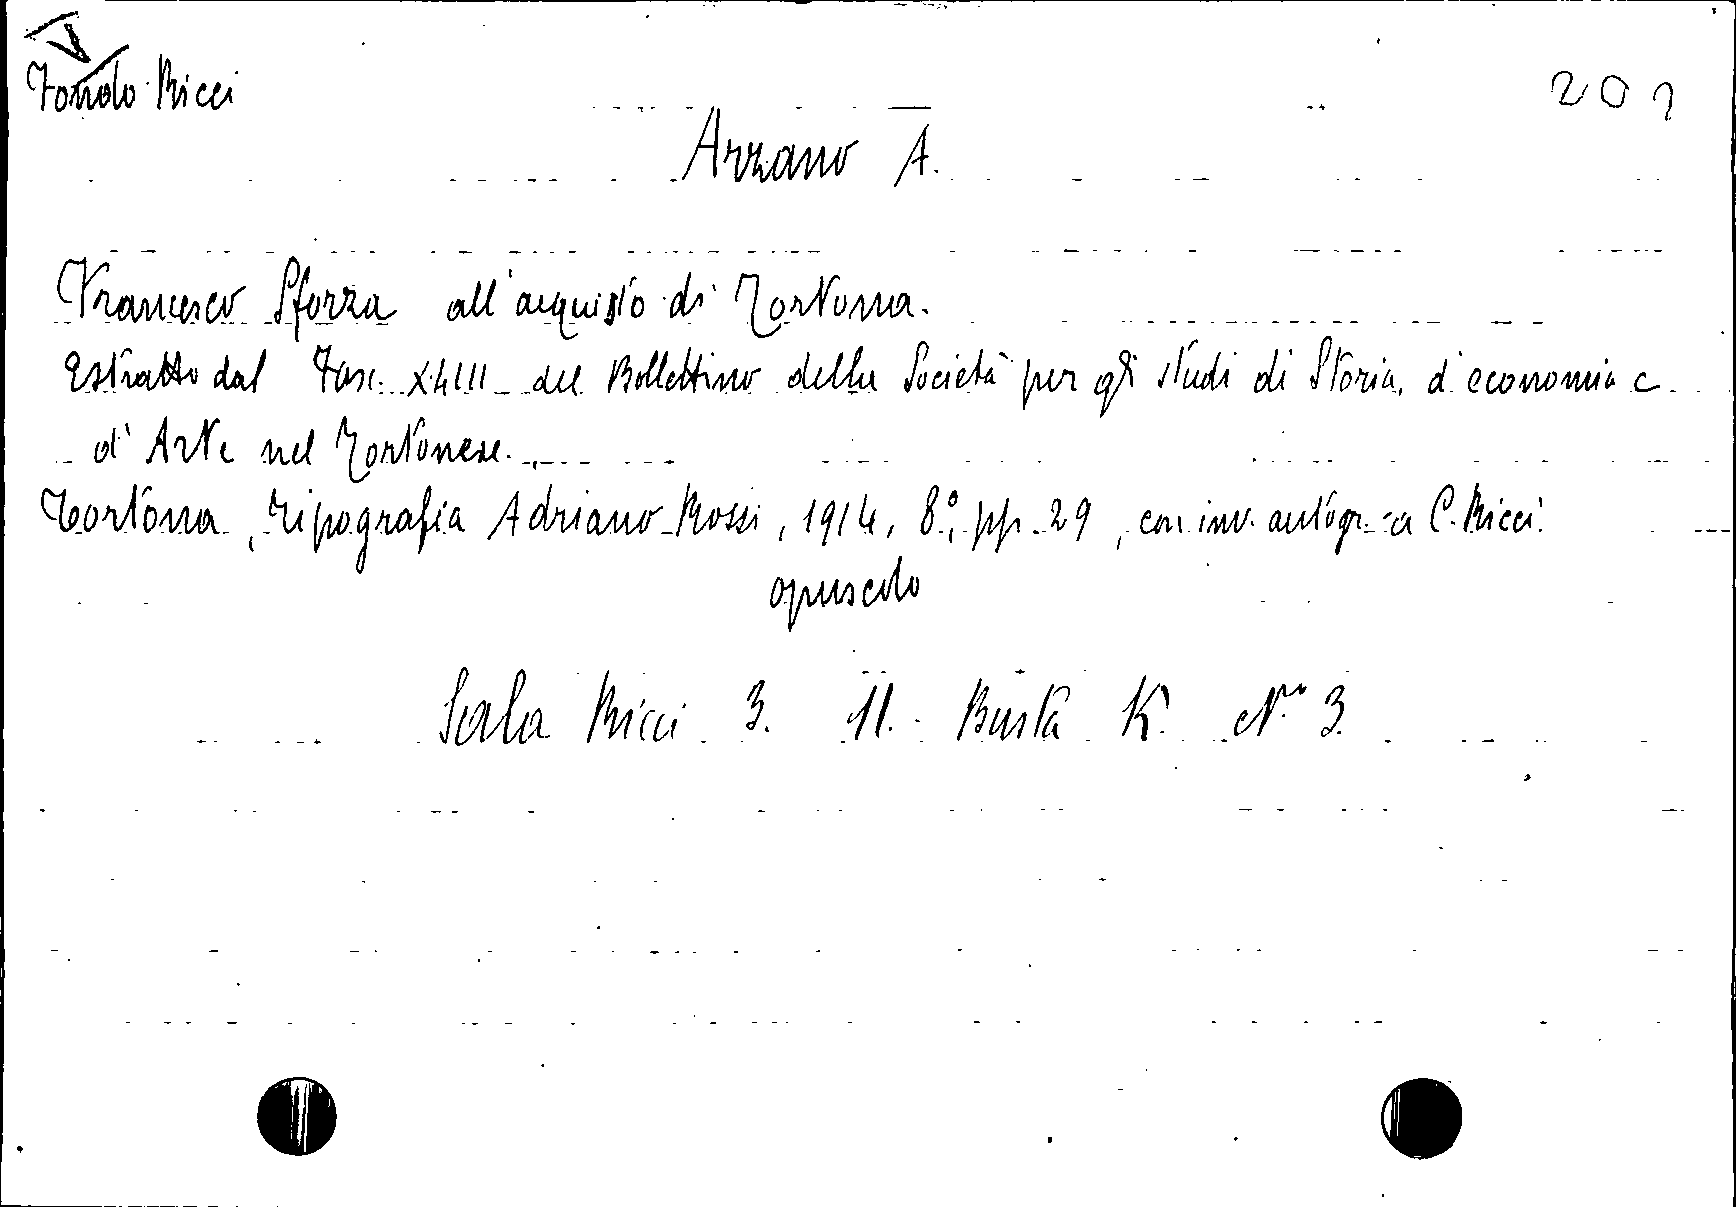 V
Fondo Ricci
201
Arzano A.
Francesco Sforza all'acquisto di Tortona.
Estratto dal Fasc. XLIII del Bollettino della Società per gli studi di Storia, d'economia e
d'Arte nel Tortonese.
Tortona, Tipografia Adriano Rossi, 1914, 8°, pp. 29, con inv. autogr. a C. Ricci.
opuscolo
Sala Ricci 3. 11. Busta K. N° 3.